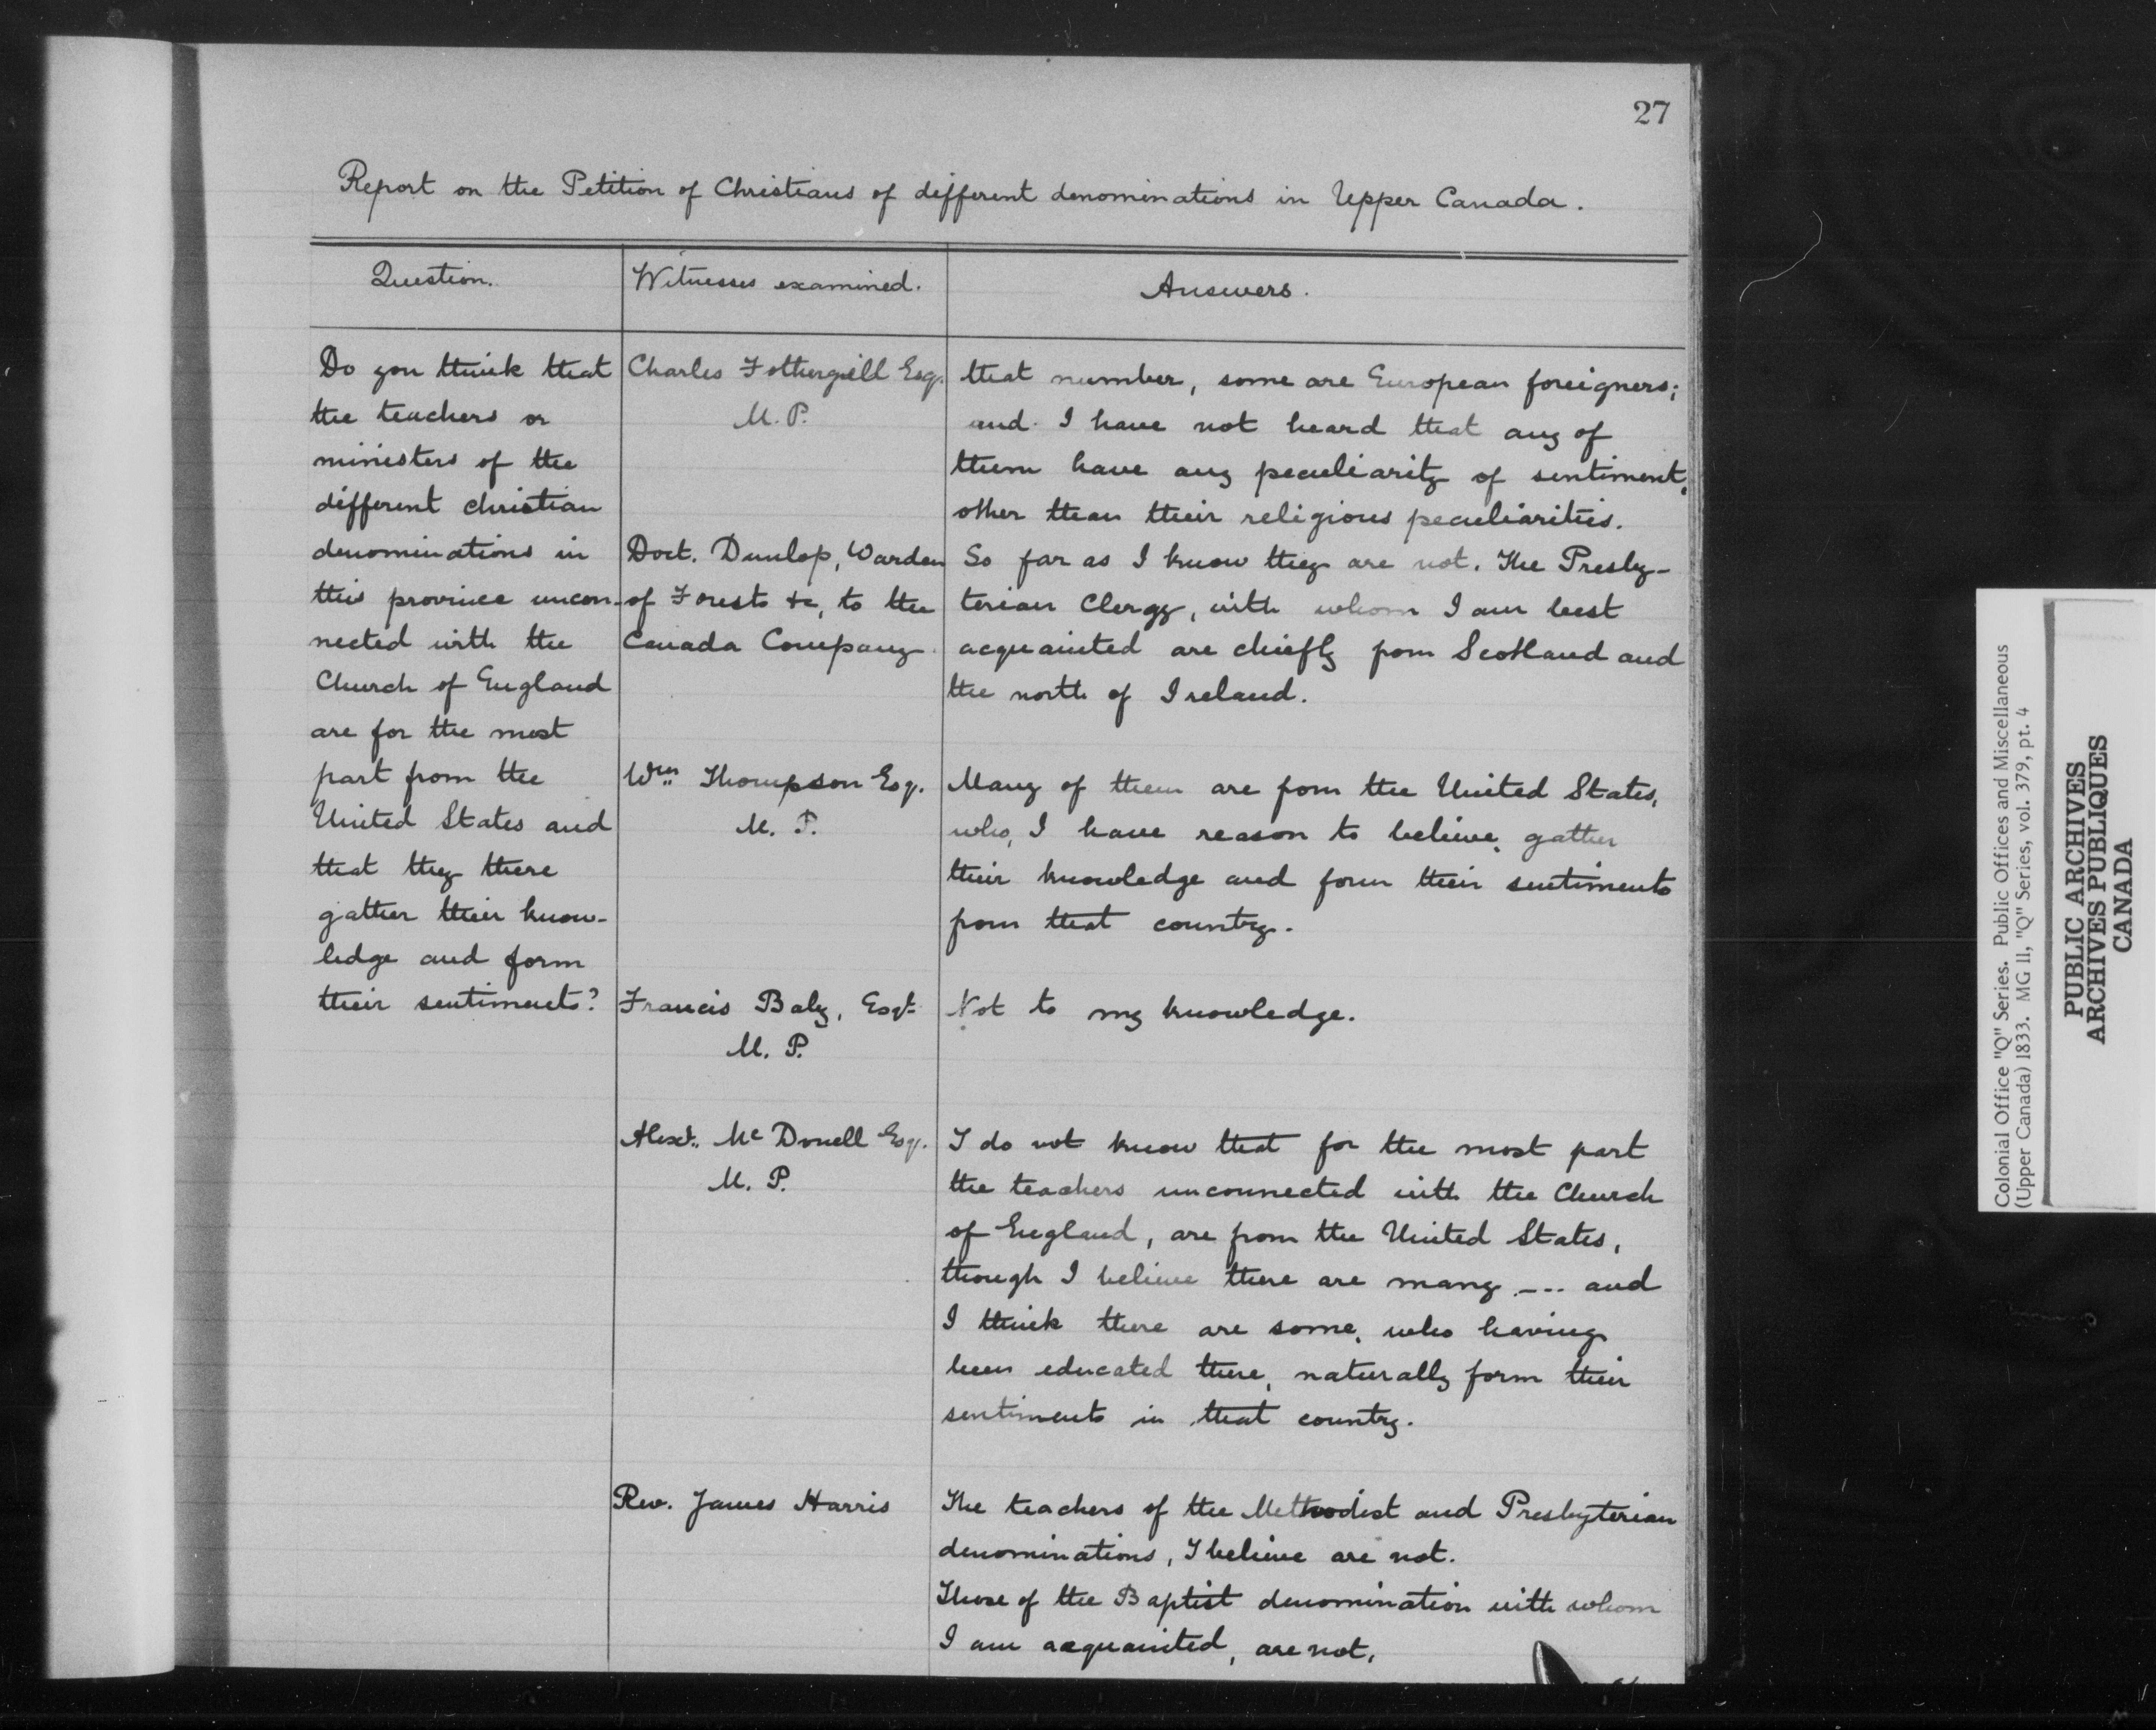 27
Report on the Petition of Christians of different denominations in Upper Canada.
Question.
Witnesses examined.
Answers.
Do you think that
the teachers or
ministers of the
different christian
denominations in
this province uncon-
nected with the
Church of England
are for the most
part from the
United States and
that they there
gather their know-
ledge and form
their sentiments?
Charles Fothergill Esq.
M.P.
that number, some are European foreigners;
and I have not heard that any of
them have any peculiarity of sentiment,
other than their religious peculiarities.
Doct. Dunlop, Warden
of Forests &c, to the
Canada Company
So far as I know they are not. The Presby-
terian Clergy, with whom I am best
acquainted are chiefly from Scotland and
the north of Ireland.
Wm. Thompson Esq.
M. P.
Many of them are from the United States,
who, I have reason to believe, gather
their knowledge and form their sentiments
from that country.
Francis Baby, Esqr.
M. P.
Not to my knowledge.
Alexr. Mc Donell Esq.
M. P.
I do not know that for the most part
the teachers unconnected with the Church
of England, are from the United States,
though I believe there are many --- and
I think there are some, who having
been educated there, naturally form their
sentiments in that country.
Rev. James Harris
The teachers of the Methodist and Presbyterian
denominations, I believe are not.
Those of the Baptist denomination with whom
I am acquainted, are not.
Colonial Office "Q" Series. Public Offices and Miscellaneous
(Upper Canada) 1833. MG 11, "Q" Series, vol. 379, pt. 4
PUBLIC ARCHIVES
ARCHIVES PUBLIQUES
CANADA